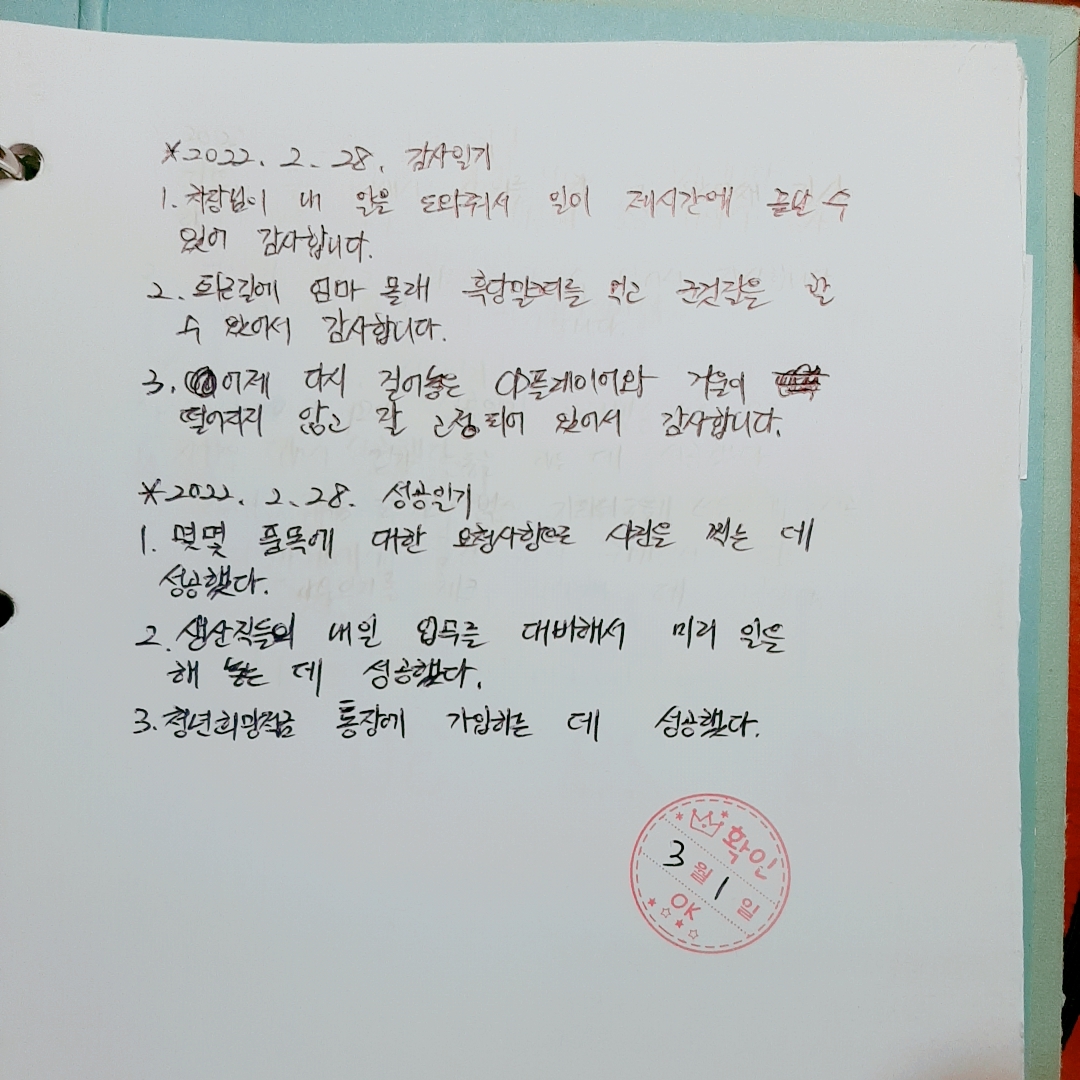 *2022. 2. 28. 감사일기
1. 차장님이 내 일을 도와줘서 일이 제시간에 끝날 수
있어 감사합니다.
2. 퇴근길에 엄마 몰래 흑당밀크티를 먹고 군것질을 할
수 있어서 감사합니다.
3. 어제 다시 걸어놓은 CD플레이어와 거울이
떨어지지 않고 잘 고정되어 있어서 감사합니다.
*2022. 2. 28. 성공일기
1. 몇몇 품목에 대한 요청사항으로 사진을 찍는 데
성공했다.
2. 생산직들의 내일 업무를 대비해서 미리 일을
해 놓는 데 성공했다.
3. 청년희망적금 통장에 가입하는 데 성공했다.
확인
3월 1일
OK